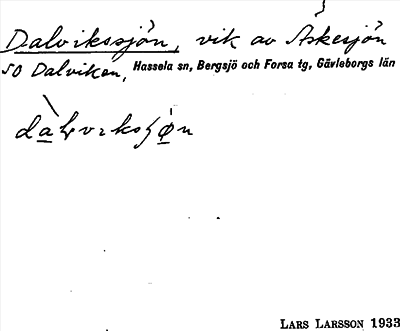 Dalvikssjön, vik av Askesjön
SO Dalviken, Hassela sn, Bergsjö och Forsa tg, Gävleborgs län
LARS LARSSON 1933